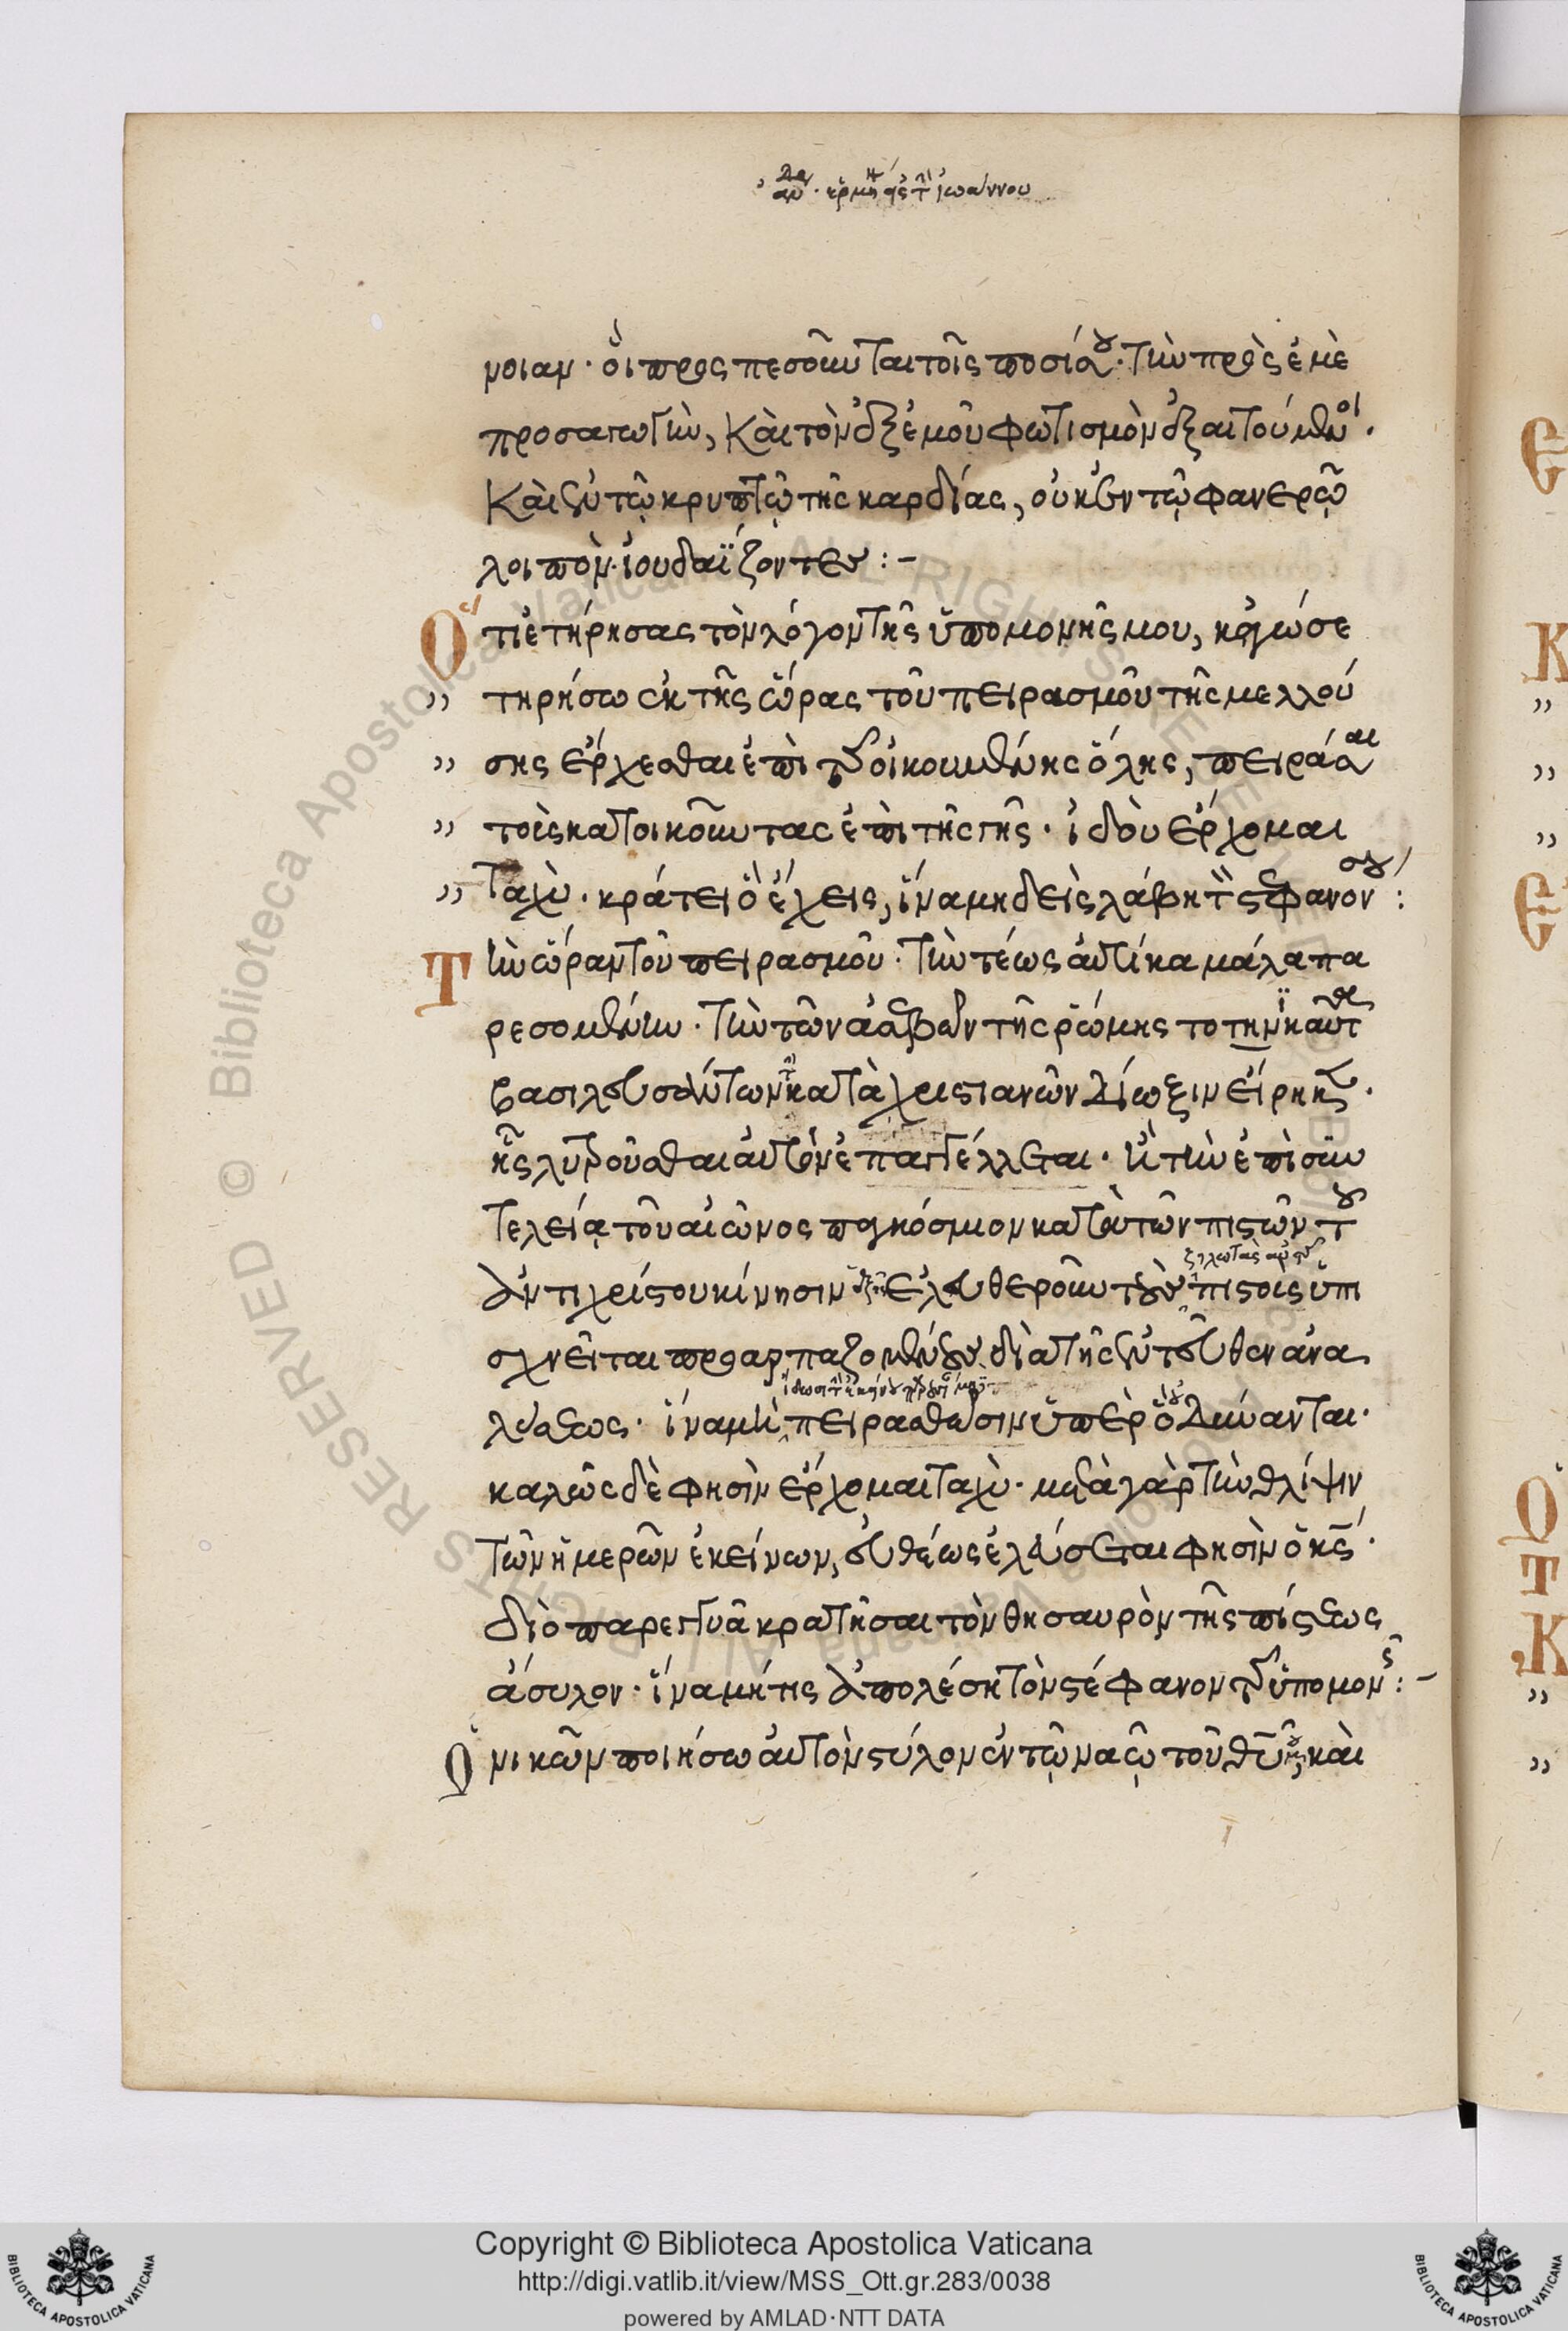 νοιαν· οἳ προσπεσοῦνται τοῖς ποσί σου· τὴν πρὸς ἐμὲ
προσαγωγὴν, καὶ τὸν ἐξ ἐμοῦ φωτισμὸν ἐξαιτούμενοι·
καὶ ἐν τῷ κρυπτῷ τῆς καρδίας, οὐκ ἐν τῷ φανερῷ
λοιπὸν ἰουδαΐζοντες :-
Ὅτι ἐτήρησας τὸν λόγον τῆς ὑπομονῆς μου, κἀγώ σε
τηρήσω ἐκ τῆς ὥρας τοῦ πειρασμοῦ τῆς μελλού
σης ἔρχεσθαι ἐπὶ τῆς οἰκουμένης ὅλης, πειράσαι
τοὺς κατοικοῦντας ἐπὶ τῆς γῆς· ἰδοὺ ἔρχομαι
ταχύ· κράτει ὃ ἔχεις, ἵνα μηδεὶς λάβῃ τὸν στέφανόν σου :
Τὴν ὥραν τοῦ πειρασμοῦ· τὴν τέως αὐτίκα μάλα πα
ρεσομένην· τὴν τῶν ἀσεβῶν τῆς ῥώμης τὸ τηνικαῦτα
βασιλευσάντων κατὰ χριστιανῶν δίωξιν εἴρηκεν·
ἧς λυτροῦσθαι αὐτὸν ἐπαγγέλλεται· ἢ τὴν ἐπὶ συν
τελείᾳ τοῦ αἰῶνος παγκόσμιον κατὰ τῶν πιστῶν τοῦ
ἀντιχρίστου κίνησιν ἐξ ἧς ἐλευθεροῦν τοὺς πιστοὺς ὑπι
ζηλωτὰς αὐτοῦ
σχνεῖται προαρπαζομένους διὰ τῆς ἐντεῦθεν ἀνα
λύσεως· ἵνα μὴ πειρασθῶσιν ὑπὲρ ὃ δύνανται·
καλῶς δὲ φησὶν ἔρχομαι ταχύ· μετὰ γὰρ τὴν θλίψιν
τῶν ἡμερῶν ἐκείνων, εὐθέως ἐλεύσεται φησὶν ὁ κς·
διὸ παρεγγυᾷ κρατῆσαι τὸν θησαυρὸν τῆς πίστεως
ἄσυλον· ἵνα μήτις ἀπολέσῃ τὸν στέφανον τῆς ὑπομονῆς :-
Ὁ νικῶν ποιήσω αὐτὸν στύλον ἐν τῷ ναῷ τοῦ θυ μου, καὶ
Copyright © Biblioteca Apostolica Vaticana
http://digi.vatlib.it/view/MSS_Ott.gr.283/0038
powered by AMLAD·NTT DATA